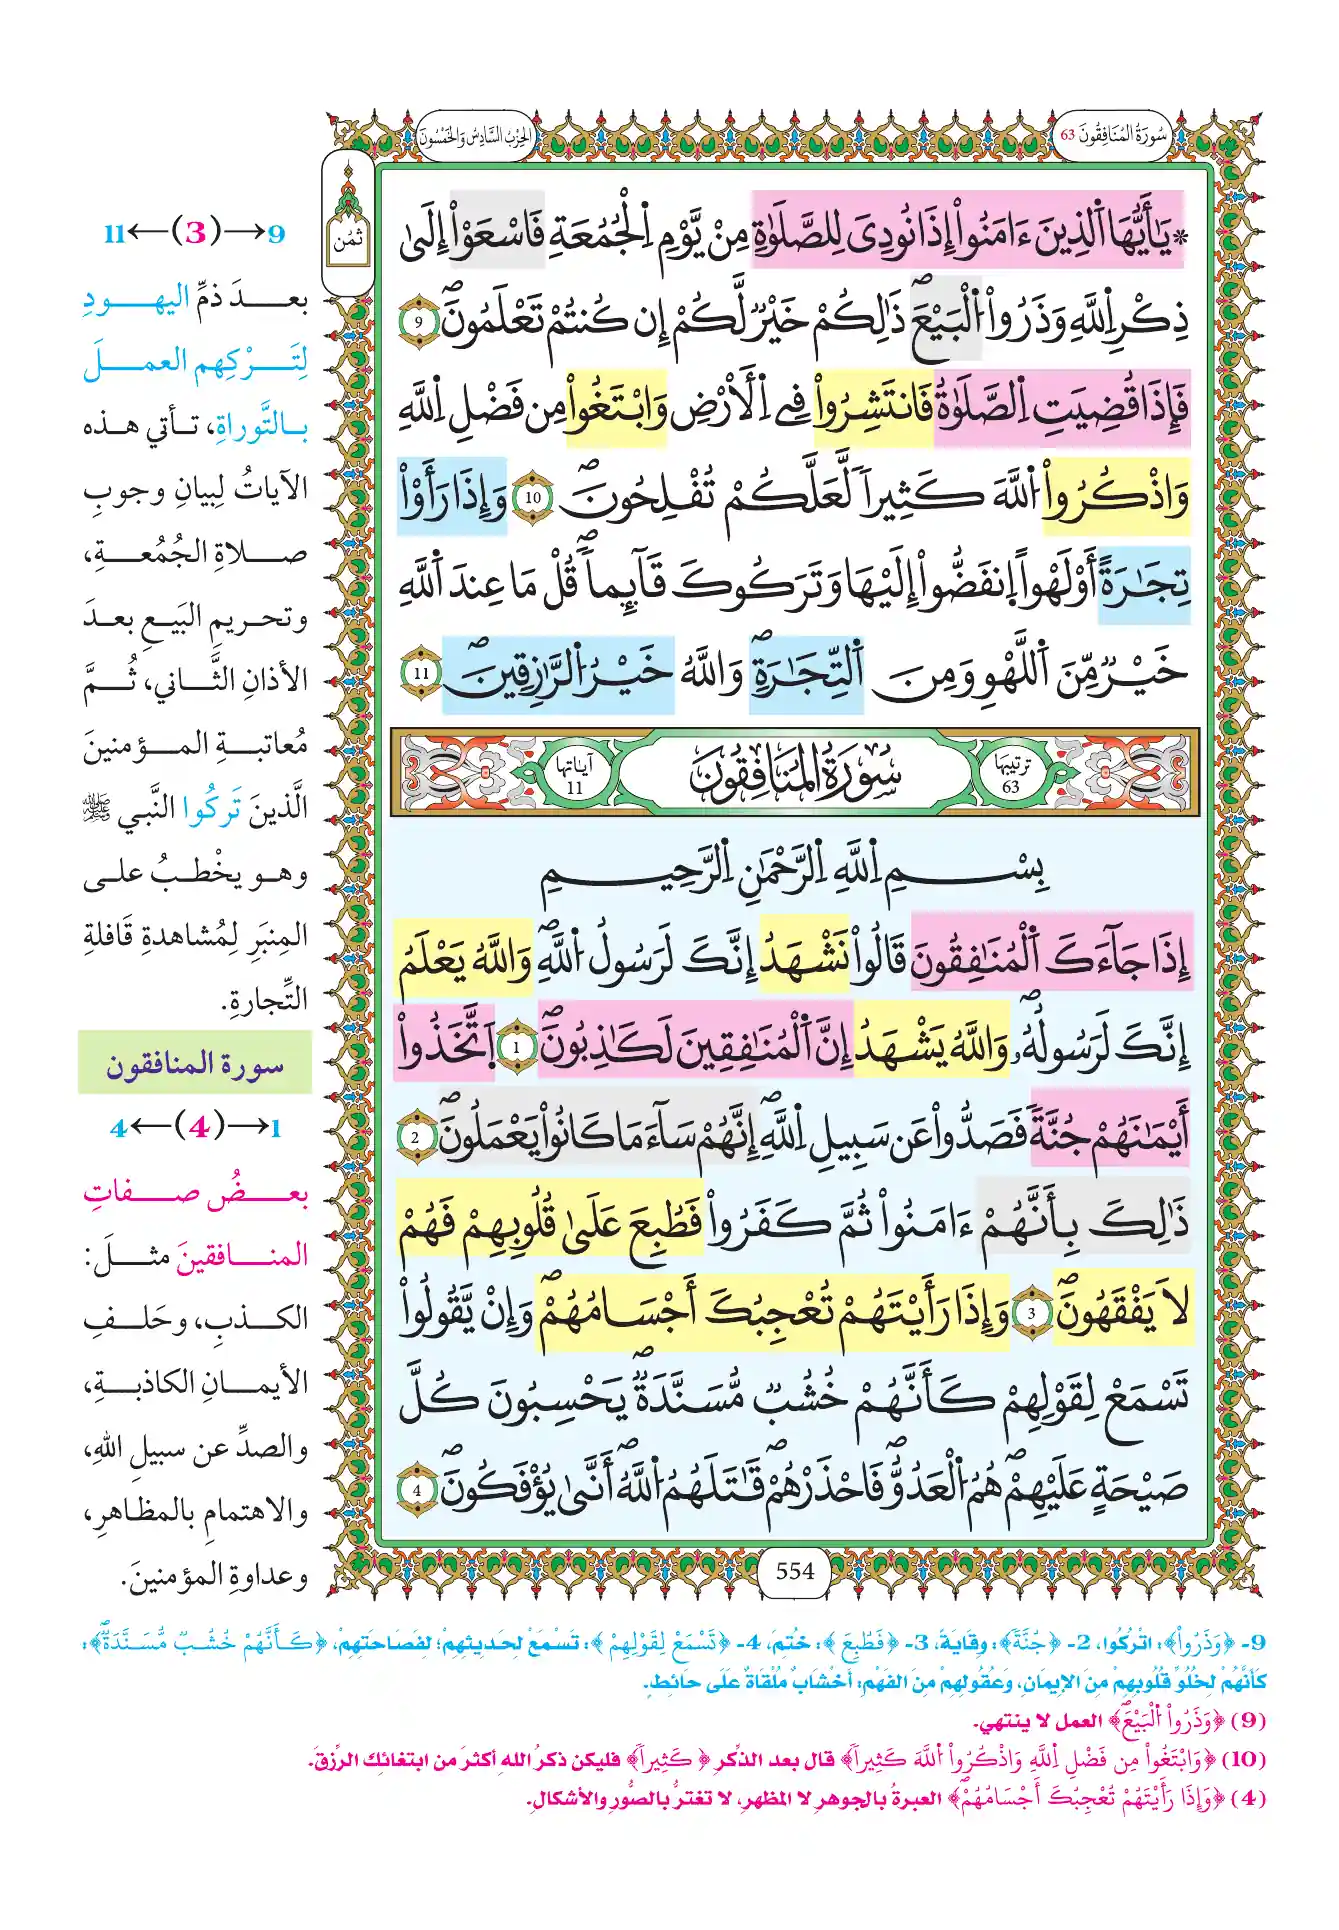 سُورَةُ المُنَافِقُونَ 63
الحِزْبُ السَّادِسُ وَالخَمْسُونَ
ثُمُن
* يَٰأَيُّهَا اَ۬لذِينَ ءَامَنُوٓاْ إِذَا نُودِيَ لِلصَّلَوٰةِ مِنْ يَّوْمِ اِ۬لْجُمُعَةِ فَاسْعَوِاْ اِلَىٰ
ذِكْرِ اِ۬للَّهِ وَذَرُواْ اُ۬لْبَيْعَۖ ذَٰلِكُمْ خَيْرٞ لَّكُمْ إِن كُنتُمْ تَعْلَمُونَۖ 9
فَإِذَا قُضِيَتِ اِ۬لصَّلَوٰةُ فَانتَشِرُواْ فِے اِ۬لْأَرْضِ وَابْتَغُواْ مِن فَضْلِ اِ۬للَّهِ
وَاذْكُرُواْ اُ۬للَّهَ كَثِيراٗ لَّعَلَّكُمْ تُفْلِحُونَۖ 10 وَإِذَا رَأَوْاْ
تِجَٰرَةً أَوْ لَهْواً اِ۪نفَضُّوٓاْ إِلَيْهَا وَتَرَكُوكَ قَآئِماٗۖ قُلْ مَا عِندَ اَ۬للَّهِ
خَيْرٞ مِّنَ اَ۬للَّهْوِ وَمِنَ اَ۬لتِّجَٰرَةِۖ وَاللَّهُ خَيْرُ اُ۬لرَّٰزِقِينَۖ 11
ترتيبها 63
سُورَةُ المُنَافِقُونَ
آياتها 11
بِسْمِ اِ۬للَّهِ اِ۬لرَّحْمَٰنِ اِ۬لرَّحِيمِ
إِذَا جَآءَكَ اَ۬لْمُنَٰفِقُونَ قَالُواْ نَشْهَدُ إِنَّكَ لَرَسُولُ اُ۬للَّهِۖ وَاللَّهُ يَعْلَمُ
إِنَّكَ لَرَسُولُهُۥۖ وَاللَّهُ يَشْهَدُ إِنَّ اَ۬لْمُنَٰفِقِينَ لَكَٰذِبُونَۖ 1 اَ۪تَّخَذُوٓاْ
أَيْمَٰنَهُمْ جُنَّةٗ فَصَدُّواْ عَن سَبِيلِ اِ۬للَّهِۖ إِنَّهُمْ سَآءَ مَا كَانُواْ يَعْمَلُونَۖ 2
ذَٰلِكَ بِأَنَّهُمْ ءَامَنُواْ ثُمَّ كَفَرُواْ فَطُبِعَ عَلَىٰ قُلُوبِهِمْ فَهُمْ
لَا يَفْقَهُونَۖ 3 وَإِذَا رَأَيْتَهُمْ تُعْجِبُكَ أَجْسَامُهُمْۖ وَإِنْ يَّقُولُواْ
تَسْمَعْ لِقَوْلِهِمْ كَأَنَّهُمْ خُشُبٞ مُّسَنَّدَةٞۖ يَحْسِبُونَ كُلَّ
صَيْحَةٍ عَلَيْهِمْۖ هُمُ اُ۬لْعَدُوُّۖ فَاحْذَرْهُمْۖ قَٰتَلَهُمُ اُ۬للَّهُۖ أَنَّىٰ يُؤْفَكُونَۖ 4
554
9→(3)←11
بعدَ ذمِّ اليهودِ
لِتَرْكِهم العملَ
بالتَّوراةِ، تأتي هذه
الآياتُ لِبيانِ وجوبِ
صلاةِ الجُمُعةِ،
وتحريمِ البَيعِ بعدَ
الأذانِ الثَّاني، ثُمَّ
مُعاتبةِ المؤمنينَ
الَّذينَ تَركُوا النَّبي ﷺ
وهو يخْطبُ على
المِنبَرِ لِمُشاهدةِ قَافلةِ
التِّجارةِ.
سورة المنافقون
1→(4)←4
بعضُ صفاتِ
المنافقينَ مثلَ:
الكذبِ، وحَلفِ
الأيمانِ الكاذبةِ،
والصدِّ عن سبيلِ اللهِ،
والاهتمامِ بالمظاهرِ،
وعداوةِ المؤمنينَ.
9- ﴿وَذَرُواْ﴾: اتْرُكُوا، 2- ﴿جُنَّةٗ﴾: وِقَايَةً، 3- ﴿فَطُبِعَ﴾: خُتِمَ، 4- ﴿تَسْمَعْ لِقَوْلِهِمْ﴾: تَسْمَعْ لِحَدِيثِهِمْ؛ لِفَصَاحَتِهِمْ، ﴿كَأَنَّهُمْ خُشُبٞ مُّسَنَّدَةٞۖ﴾:
كَأَنَّهُمْ لِخُلُوِّ قُلُوبِهِمْ مِنَ الإِيمَانِ، وَعُقُولِهِمْ مِنَ الفَهْمِ: أَخْشَابٌ مُلْقَاةٌ عَلَى حَائِطٍ.
(9) ﴿وَذَرُواْ اُ۬لْبَيْعَۖ﴾ العمل لا ينتهي.
(10) ﴿وَابْتَغُواْ مِن فَضْلِ اِ۬للَّهِ وَاذْكُرُواْ اُ۬للَّهَ كَثِيراٗ﴾ قال بعد الذِّكر ﴿كَثِيراٗ﴾ فليكن ذكرُ الله أكثرَ من ابتغائِك الرِّزقَ.
(4) ﴿وَإِذَا رَأَيْتَهُمْ تُعْجِبُكَ أَجْسَامُهُمْۖ﴾ العبرةُ بالجوهرِ لا المظهرِ، لا تغترُّ بالصُّورِ والأشكالِ.